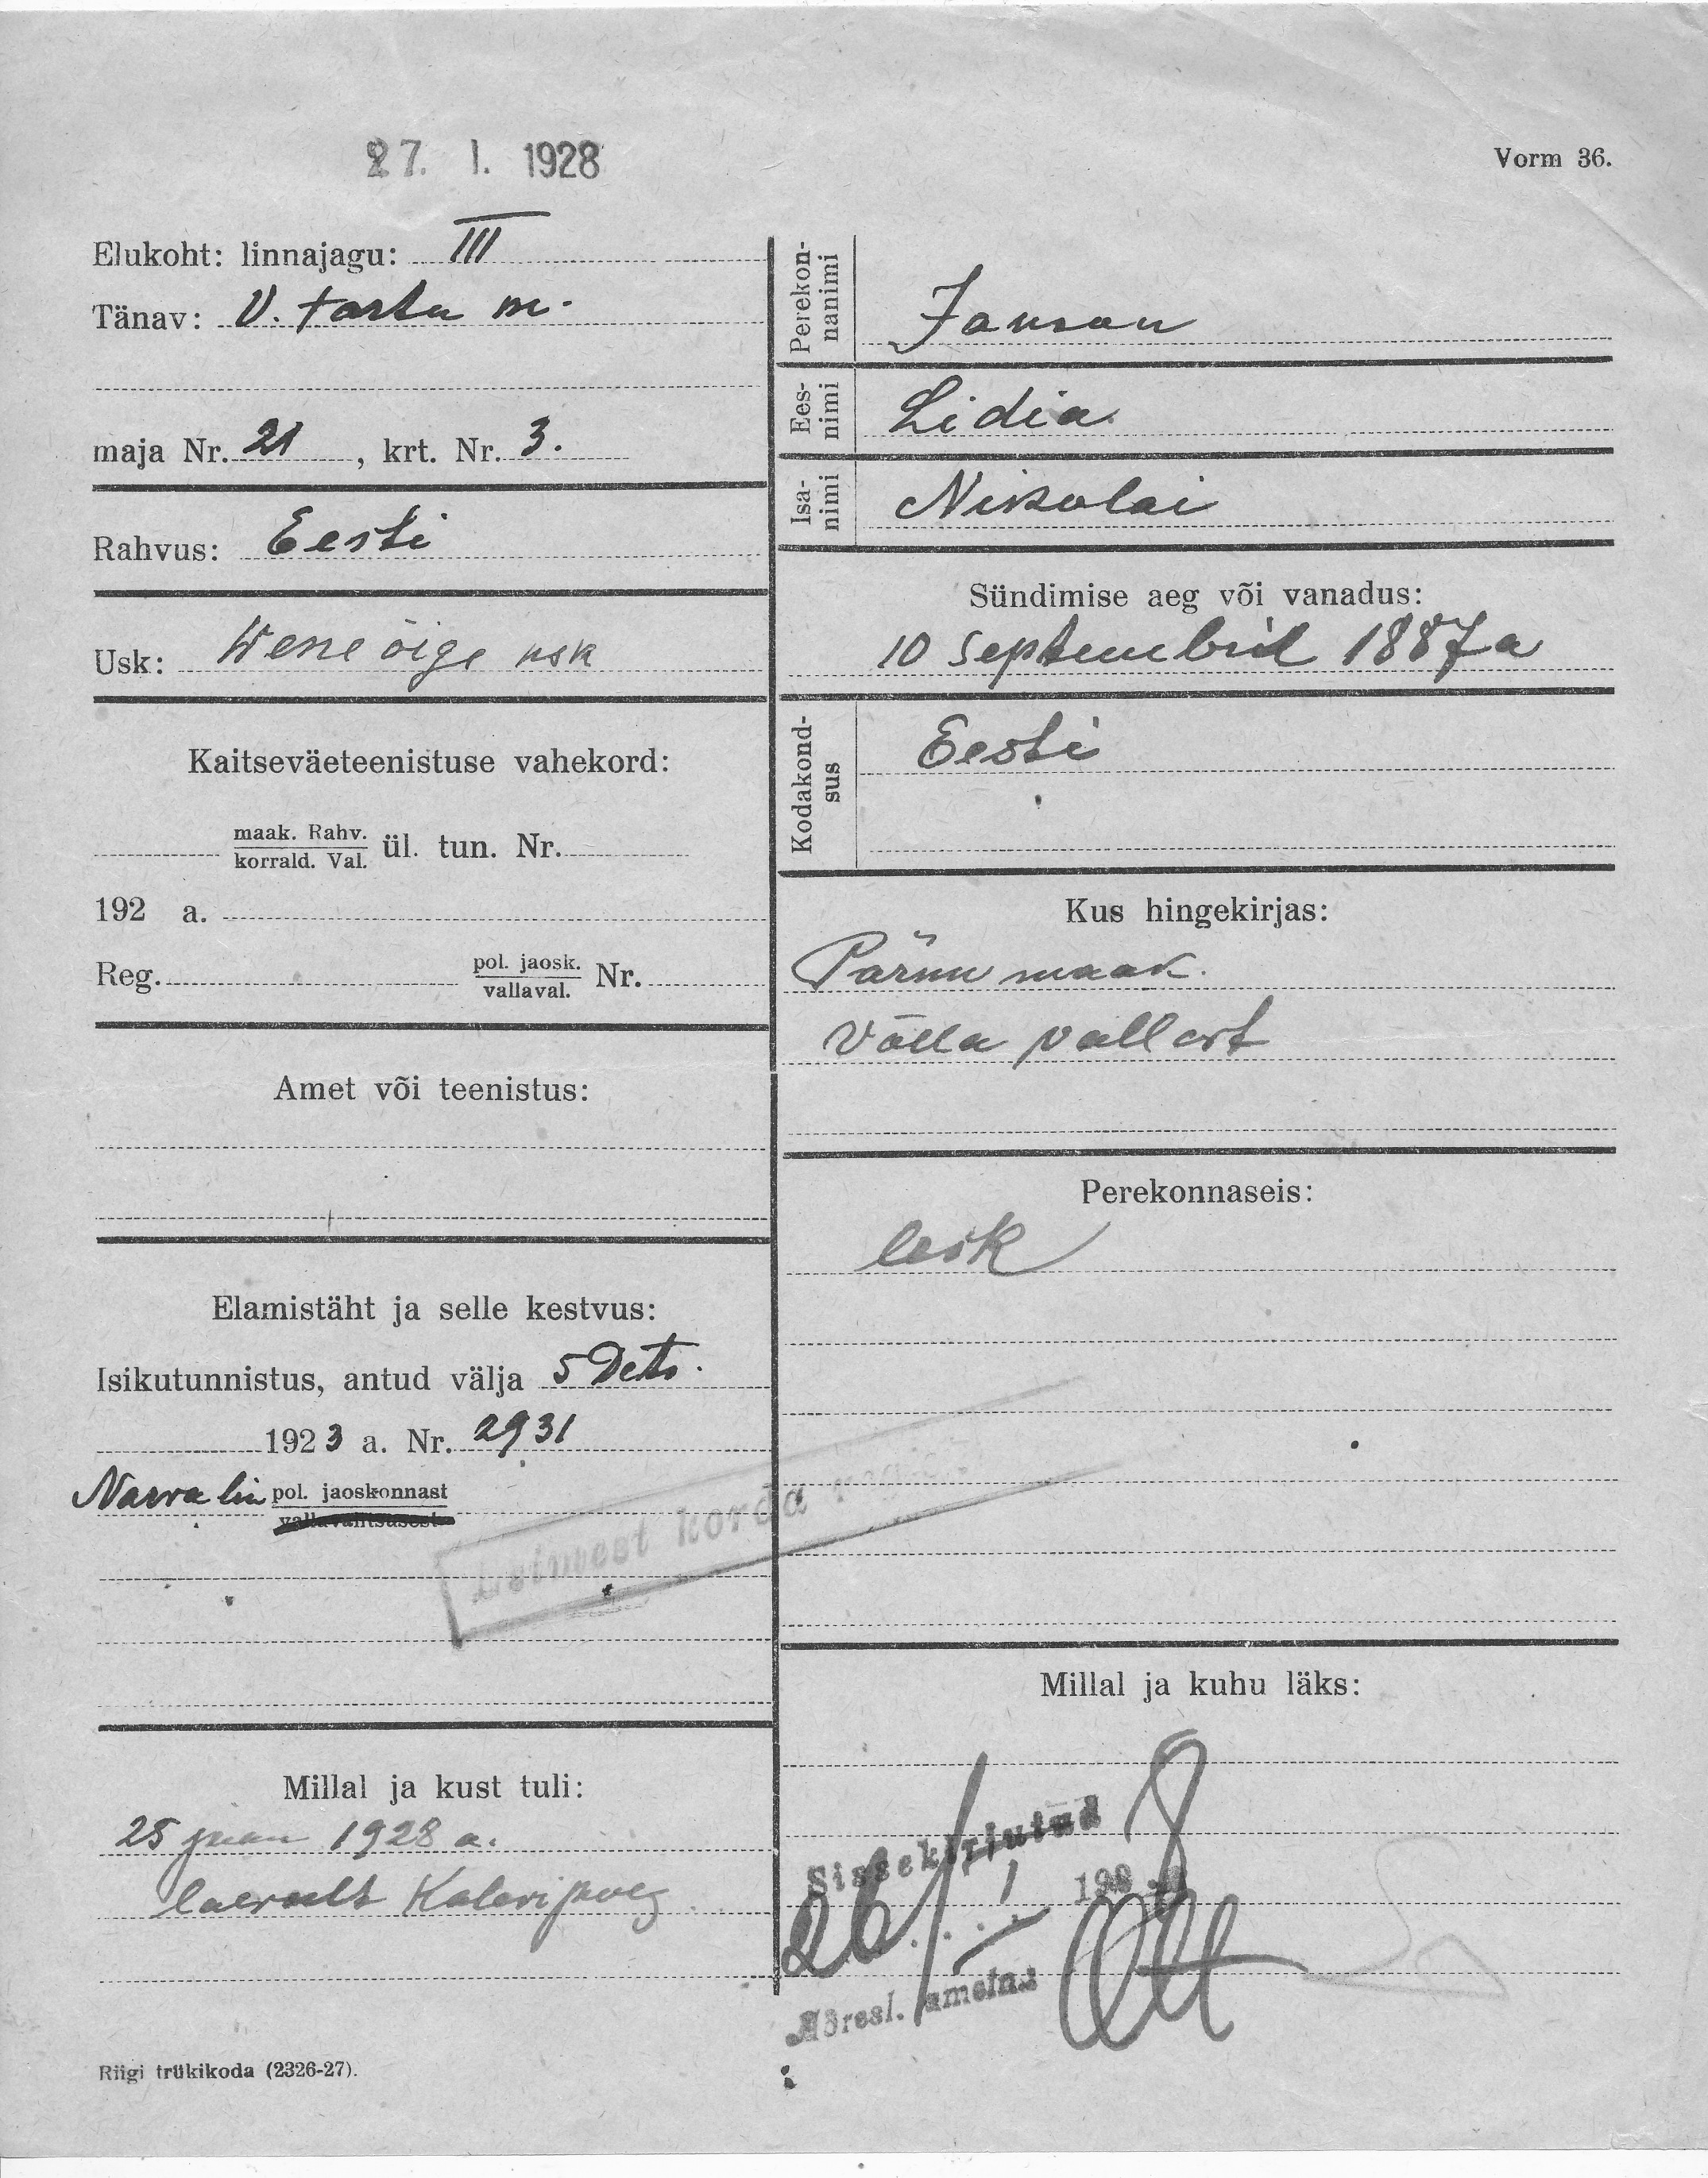 27. I. 1928
Vorm 36.
Elukoht: linnajagu: III
Tänav: V. Tartu m.
maja Nr. 21, krt. Nr. 3.
Rahvus: Eesti
Usk: Wene õige usk
Kaitseväeteenistuse vahekord:
maak. Rahv.
korrald. Val. ül. tun. Nr.
192 a.
Reg. pol. jaosk.
vallaval. Nr.
Amet või teenistus:
Elamistäht ja selle kestvus:
Isikutunnistus, antud välja 5 Dets.
1923 a. Nr. 2931
Narva lin pol. jaoskonnast
vallavalitsusest
Esimest korda
Millal ja kust tuli:
25 1928 a.
laevalt Kalevipoeg
Riigi trükikoda (2326-27).
Perekon-
nanimi
Janson
Ees-
nimi
Lidia
Isa-
nimi
Nikolai
Sündimise aeg või vanadus:
10 septembril 1887 a
Kodakond-
sus
Eesti
Kus hingekirjas:
Pärnu maak.
Võlla vallast
Perekonnaseis:
lesk
Millal ja kuhu läks:
Sissekirjutud
26/I 192 8
Adresl. ametn.:
Ott